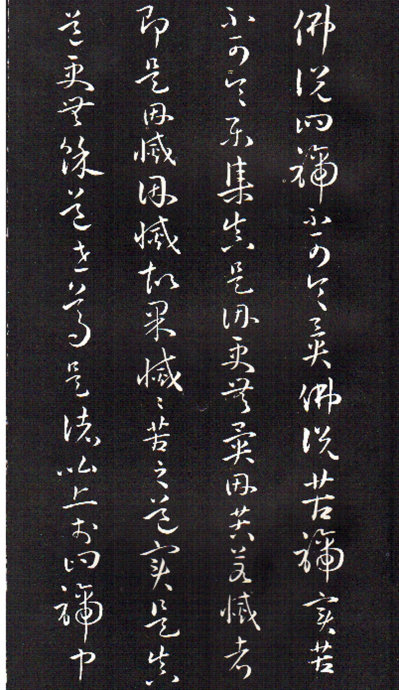 佛說四諦不可令異佛說苦諦實苦
不可令樂集真是因更無異因苦若滅者
即是因滅因滅故果滅〻苦之道實是真
道更無餘道世尊是諸比丘於四諦中